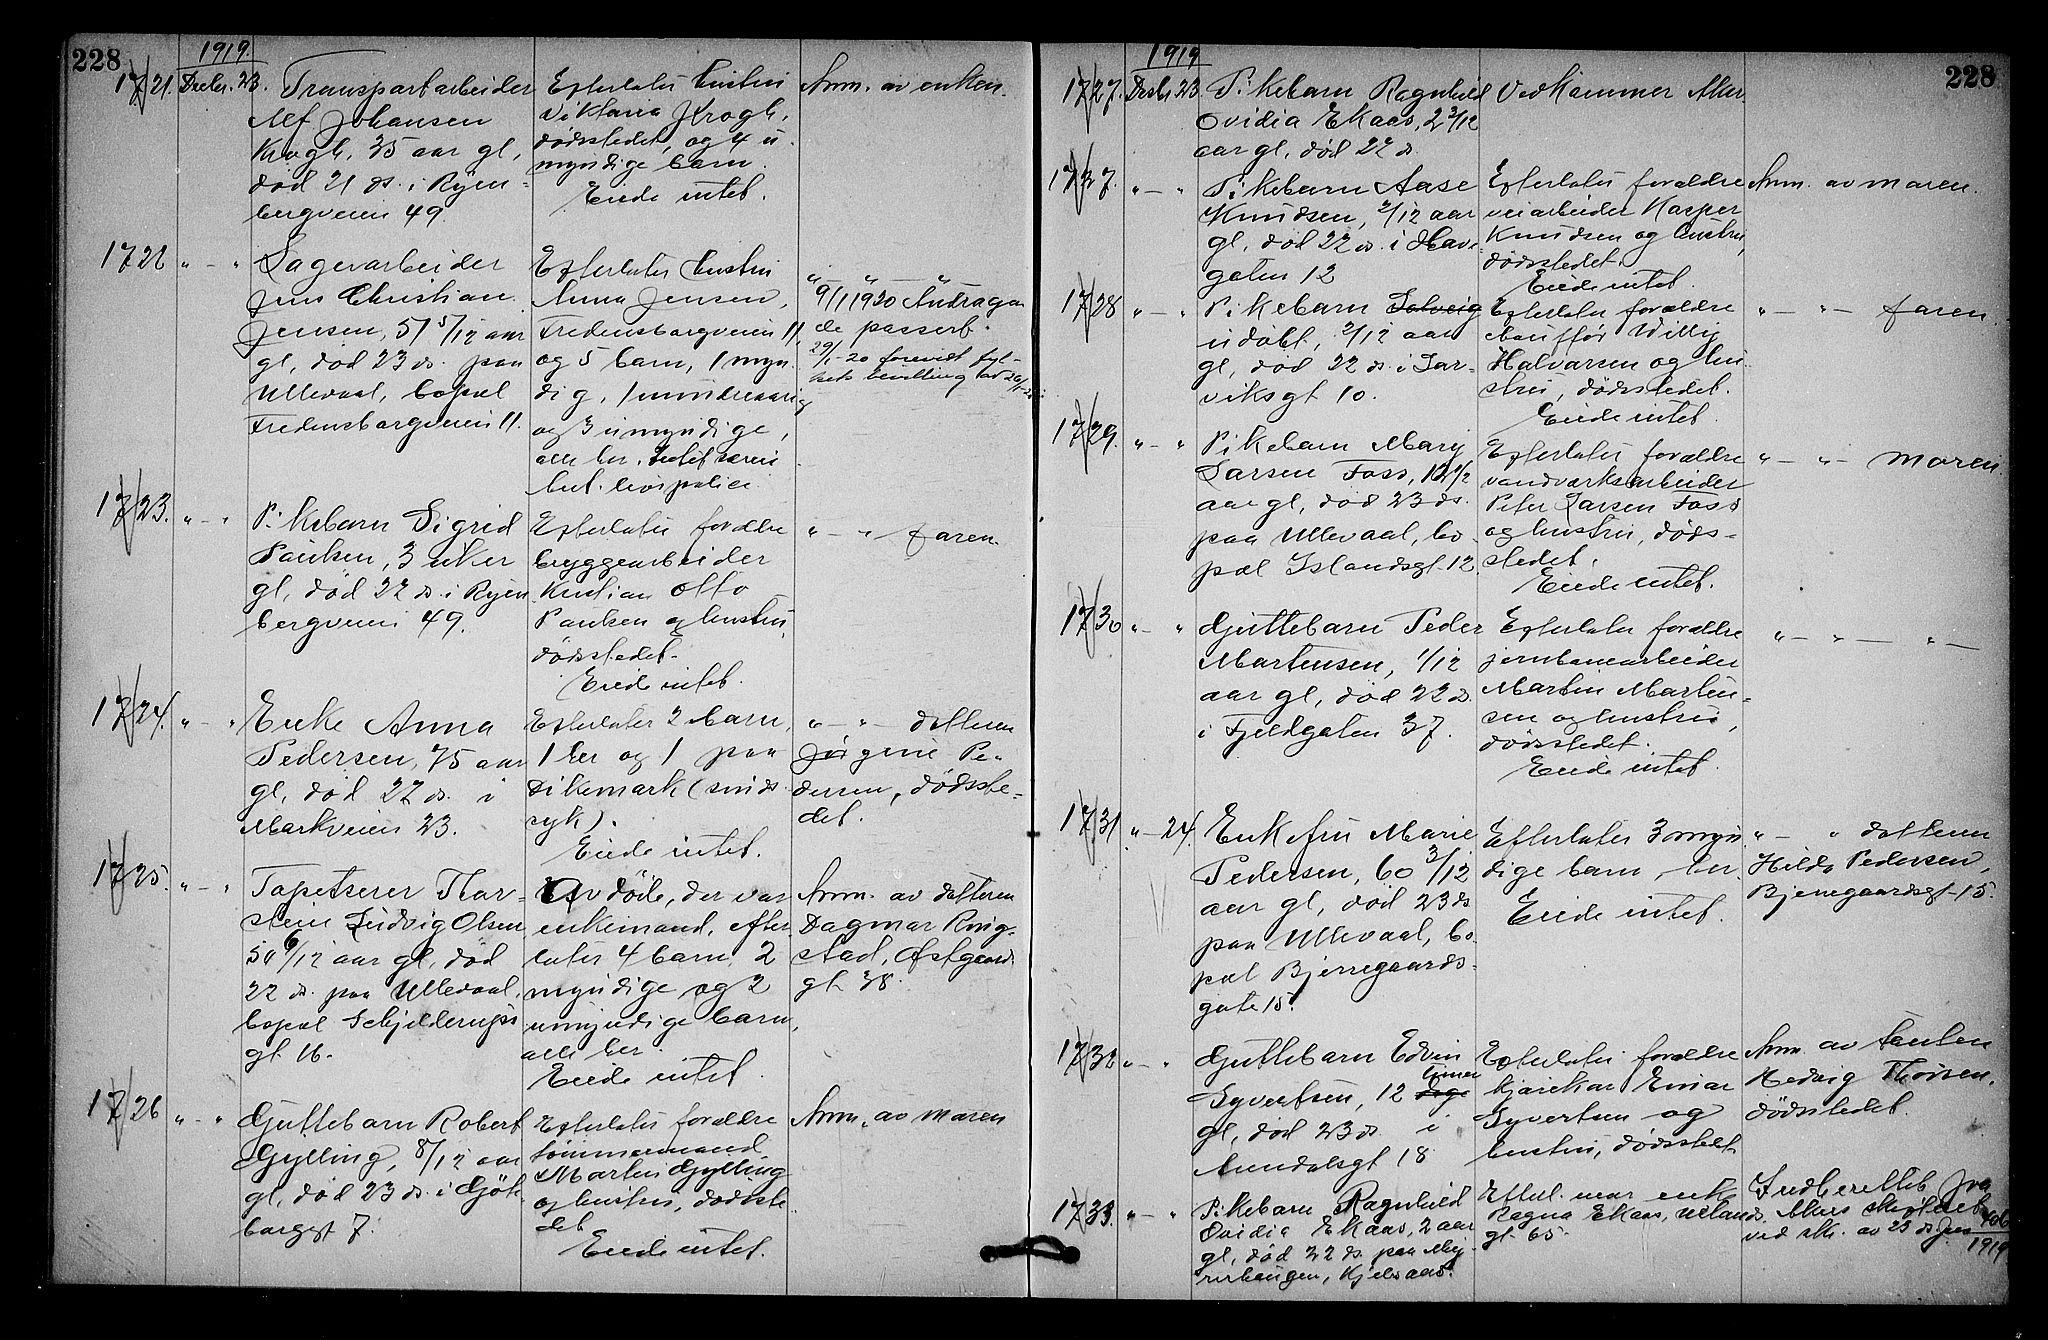 228
1919.
1721. Decbr. 23. Transportarbeider
Alf Johansen
Krogh, 35 aar gl,
død 21 ds. i Ryen-
bergveien 49
Efterlater hustru
Viktoria Krogh,
dødsstedet, og 4 u
myndige barn.
Eiede intet.
Anm. av enken.
1722 " - " Lagerarbeider
Jens Christian
Jensen, 51 5/12 aar
gl, død 23 ds. paa
Ullevaal, bopæl
Fredensborgveien 11.
Efterlater hustru
Anna Jensen,
Fredensborgveien 11,
og 5 barn, 1 myn
dig, 1 mindreaarig
og 3 umyndige,
alle her. Intet særei
but. livspolice.
" " "
9/1 1920 Andragen
de passert.
29/1-20 forevist fyl-
kets bevilling av 26/1-20
1723. " - " Pikebarn Sigrid
Paulsen, 3 uker
gl, død 22 ds. i Ryen
bergveien 49.
Efterlater forældre
bryggearbeider
Kristian Otto
Paulsen og hustru,
dødsstedet.
Eiede intet.
" - " faren.
1724. " - " Enke Anna
Pedersen, 75 aar
gl, død 22 ds. i
Markveien 23.
Efterlater 2 barn,
1 her og 1 paa
Dikemark (sinds
syk).
Eiede intet.
" - " datteren
Jørgine Pe-
dersen, dødsste-
det.
1725. " - " Tapetserer Thor-
stein Ludvig Olsen
50 6/12 aar gl, død
22 ds. paa Ullevaal,
bopæl Schjelderups
gt. 16.
Avdøde, der var
enkemand, efter
later 4 barn, 2
myndige og 2
umyndige barn,
alle her.
Eiede intet.
Anm. av datteren
Dagmar Ring-
stad, Østgaards
gt. 38.
1726 " - " Guttebarn Robert
Gylling, 8/12 aar
gl, død 23 ds. i Gøte
borggt 7.
Efterlater forældre
tømmermand
Martin Gylling
og hustru, dødsste
det
Eiede intet.
Anm. av moren
228
1919
1727. Decbr. 23. Pikebarn Ragnhild
Ovidia Ekaas, 2 2/12
aar gl, død 22 ds
Vedkommer Aker
1727. " - " Pikebarn Aase
Knudsen, 2/12 aar
gl, død 22 ds. i Have
gaten 12
Efterlater forældre
veiarbeider Kasper
Knudsen og hustru,
dødsstedet.
Eiede intet.
Anm. av moren.
1728 " - " Pikebarn Solveig
udøbt, 2/12 aar
gl, død 22 ds. i Lar-
viksgt 10.
Efterlater forældre
chauffør Willy
Halvorsen og hu
stru, dødsstedet.
Eiede intet.
" - " - faren.
1729. " - " Pikebarn Mary
Larsen Foss, 12 1/2
aar gl, død 23 ds.
paa Ullevaal, bo-
pæl Islandsgt. 12
Efterlater forældre
vandværksarbeider
Peter Larsen Foss
og hustru, døds-
stedet.
Eiede intet.
" - " - moren
1730 " - " Guttebarn Peder
Martensen, 1/12
aar gl, død 22 ds.
i Fjeldgaten 37.
Efterlater forældre
jernbanearbeider
Martin Marten-
sen og hustru,
dødsstedet.
Eiede intet.
" - " - " -
1731. " - 24. Enkefru Marie
Pedersen, 60 3/12
aar gl, død 23 ds
paa Ullevaal, bo
pæl Bjerregaards-
gate 15.
Efterlater 3 myn
dige barn, her.
Eiede intet.
" - " datteren
Hilda Pedersen,
Bjerregaardsgt. 15.
1732 " - " Guttebarn Edvin
timer
Syvertsen, 12 dage
gl, død 23 ds. i
Arendalsgt 18
Efterlater forældre
kjørekar Einar
Syvertsen og
hustru, dødsstedet
Anm. av tanten
Hedvig Thoresen,
dødsstedet.
1733. " - " Pikebarn Ragnhild
Ovidia Ekaas, 2 aar
gl, død 22 ds. paa
Kjelsaas.
Efterl. mor enke
Ragna Ekaas, Ueland
gt. 65.
Indberettet fra
Akers skifteret
ved skr. av 23 ds. Jnr 406
1919